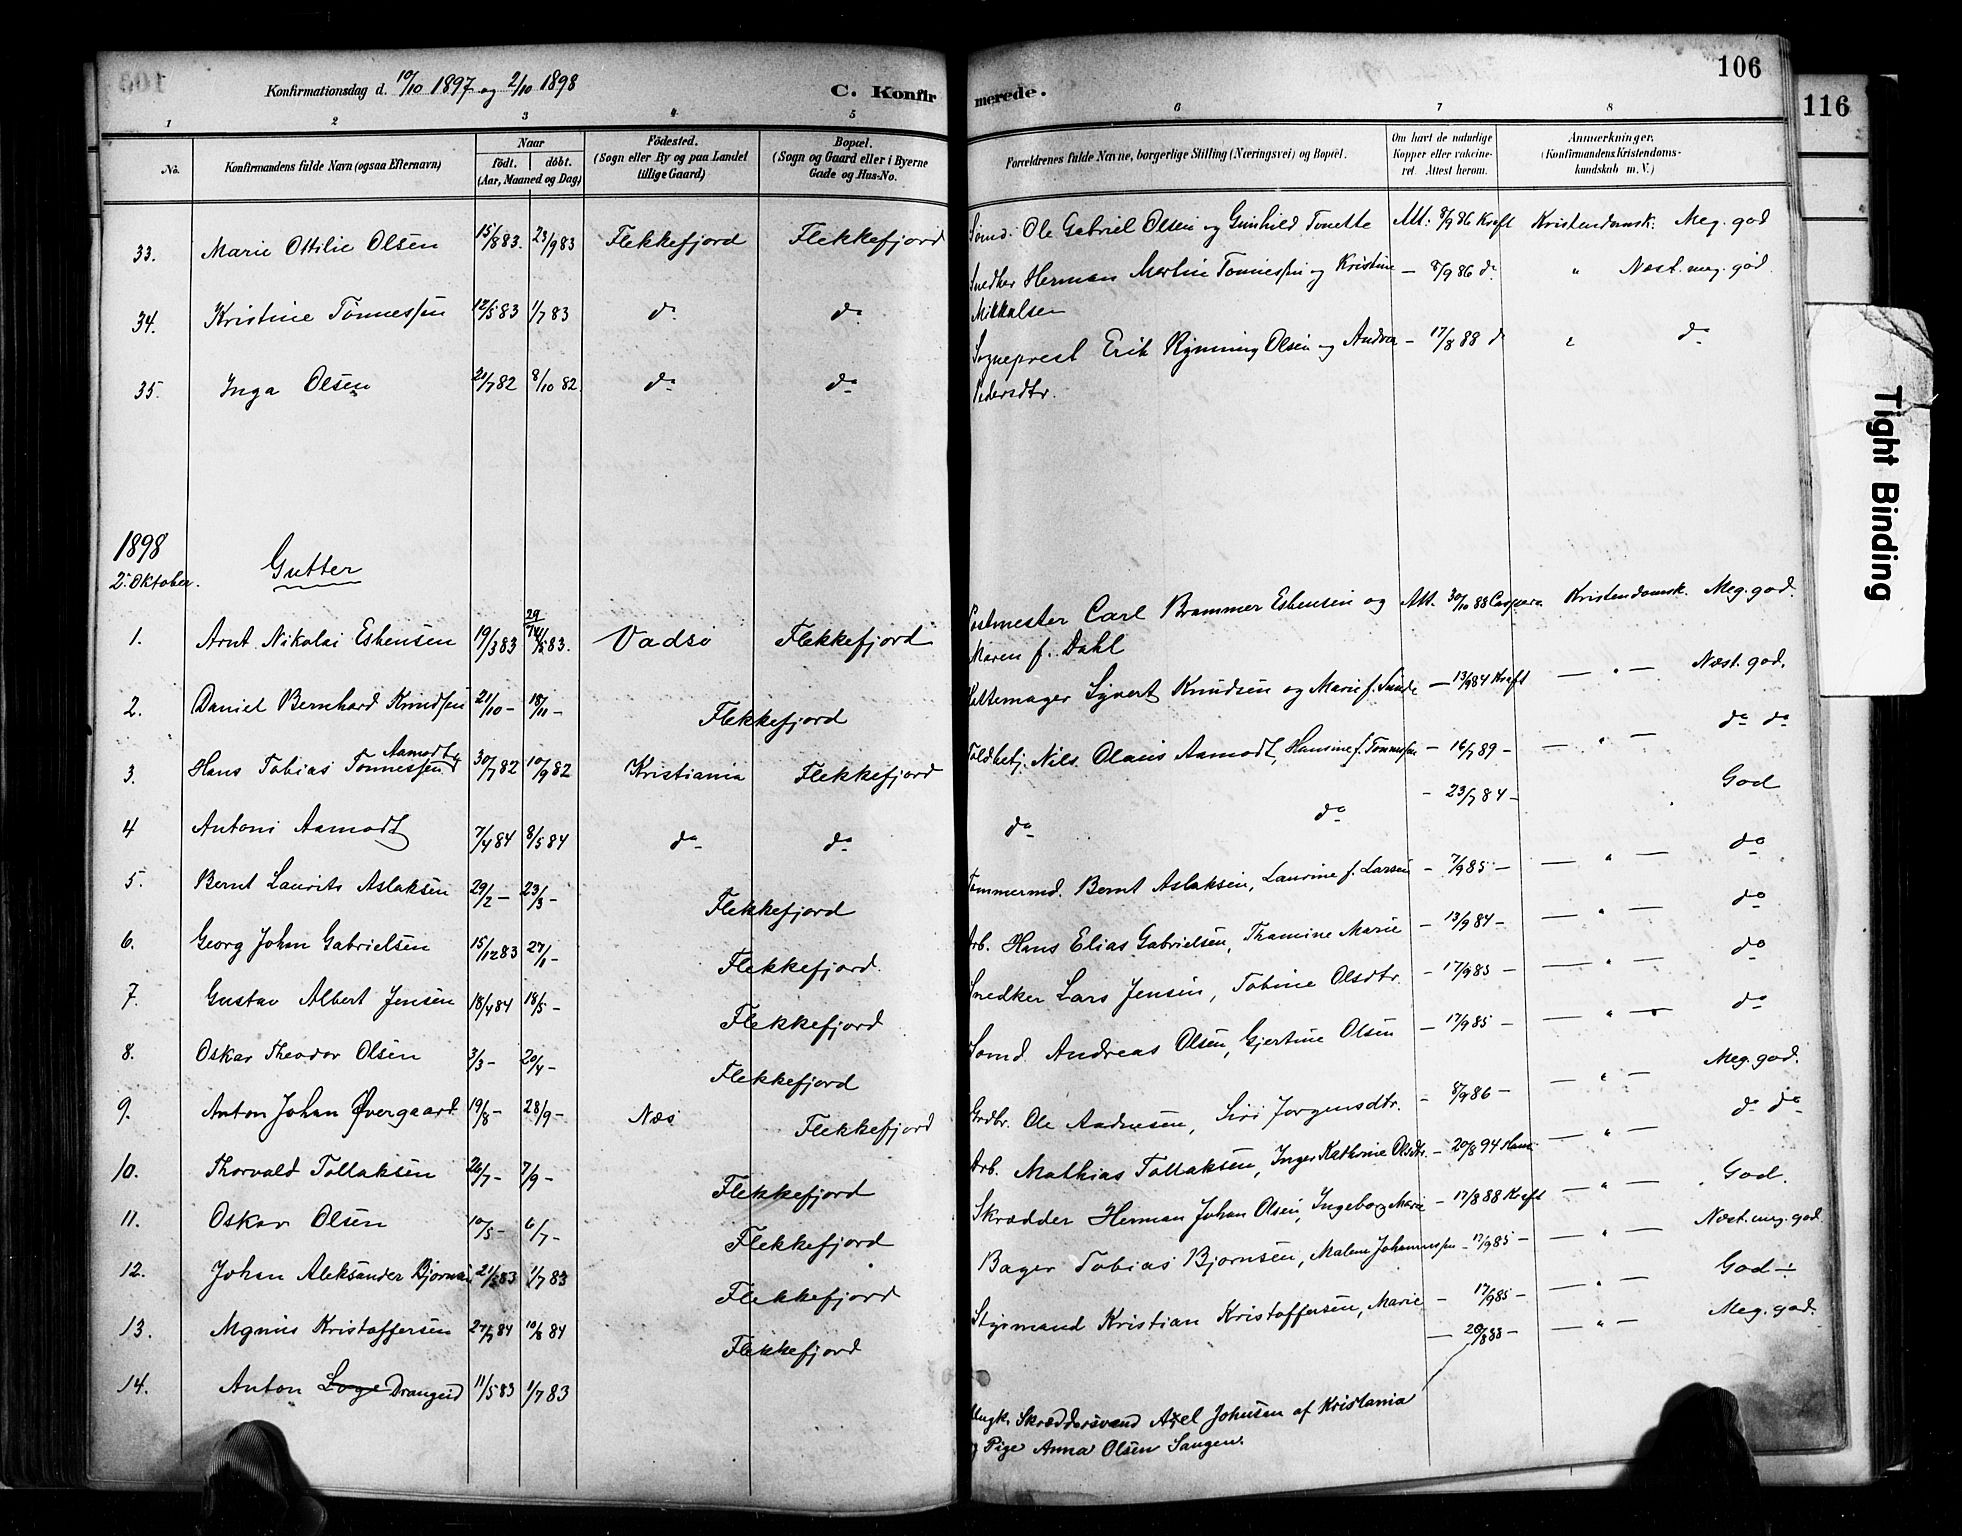 Konfirmationsdag d. 10/10 1897 og 2/10 1898
C. Konfirmerede.
106
116
1 2 3 4 5 6 7 8
No.
Konfirmandens fulde Navn (ogsaa Efternavn)
Naar
født. døbt.
(Aar, Maaned og Dag)
Fødested.
(Sogn eller By og paa Landet
tillige Gaard)
Bopæl.
(Sogn og Gaard eller i Byerne
Gade og Hus-No.
Forældrenes fulde Navne, borgerlige Stilling (Næringsvei) og Bopæl.
Om havt de naturlige
Kopper eller vakcine-
ret. Attest herom.
Anmærkninger.
(Konfirmandens Kristendoms-
kundskab m. V.)
33. Marie Ottilie Olsen 15/8 83. 23/9 83 Flekkefjord Flekkefjord Sømd. Ole Gabriel Olsen og Gunhild Tonette Att. 8/9 86 Kraft Kristendomsk. Meg. god
34. Kristine Tønnessen 12/5 83 1/7 83 do do Snedker Herman Martin Tønnessen og Kristine — 8/9 86 do " Næst. meg. god.
Mikkalsen
35. Inga Olsen 21/7 82 8/10 82. do do Sogneprest Erik Rynning Olsen og Andrea — 17/8 88 d " do
Pedersdtr.
1898
2. Oktober.
Gutter
1. Arnt Nikolai Esbensen 19/3 83 29/5 83. Vadsø Flekkefjord Postmester Carl Brammer Esbensen og Att. 30/10 88 Kristendomsk. Meg. god.
Maren f. Dahl
2. Daniel Bernhard Knudsen 21/10 — 18/11 — Flekkefjord Feltemager Syvert Knudsen og Marie f. Sunde — 13/9 84 Kraft — " — Næst. god.
3. Hans Tobias Tønnessen Aamodt 30/7 82 10/9 82 Kristiania Flekkefjord Toldbetj. Nils Olaus Aamodt, Hansine f. Tønnessen — 16/7 89 — — " — do do
4 Antoni Aamodt 7/4 84 8/5 84 do do do do - 23/7 84 - God
5. Bernt Laurits Aslaksen 29/2 — 23/3 — Flekkefjord Tømmermd. Bernt Aslaksen, Laurine f. Larsen — 7/9 85 — — " — do
6. Georg Johan Gabrielsen 15/12 83 27/1 — Flekkefjord. Arb. Hans Elias Gabrielsen, Thamine Marie — 13/9 84 — — " — do
7. Gustav Albert Jensen 18/4 84 18/5 — Flekkefjord Snedker Lars Jensen, Tobine Olsdtr. — 17/9 85 — — " — do
8. Oskar Theodor Olsen 3/3 — 20/4 — Flekkefjord Sømd. Andreas Olsen, Gjertine Olsen — 17/9 85 — — " — do
9. Anton Johan Øvergaard 19/8 — 28/9 — Næs Flekkefjord Grdbr. Ole Andresen, Siri Jørgensdtr. — 8/9 86 — — " — Meg. god.
10. Thorvald Tollaksen 26/7 — 7/9 — Flekkefjord Arb. Mathias Tollaksen, Inger Kathrine Olsdtr. — 20/8 94 — " — do do
11. Oskar Olsen 10/5 — 6/7 — Flekkefjord Skrædder Herman Johan Olsen, Ingeborg Marie — 17/8 88 Kraft — " — God.
12. Johan Aleksander Bjørnsen 21/5 83 1/7 83 Flekkefjord Bager Tobias Bjørnsen, Malene Johannessen — 17/9 85 — — " — Næst. meg. god.
13. Mgnus Kristoffersen 27/7 84 10/8 84 Flekkefjord Styrmand Kristian Kristoffersen, Marie — 17/9 85 — — " — God ÷
14. Anton Loge Drangeid 11/5 83 1/7 83 — 20/8 88 — — " — Meg. god.
Ungk. Skræddersvend Axel Johnsen af Kristiania
og Pige Anna Olsen Sangen.
Tight Binding